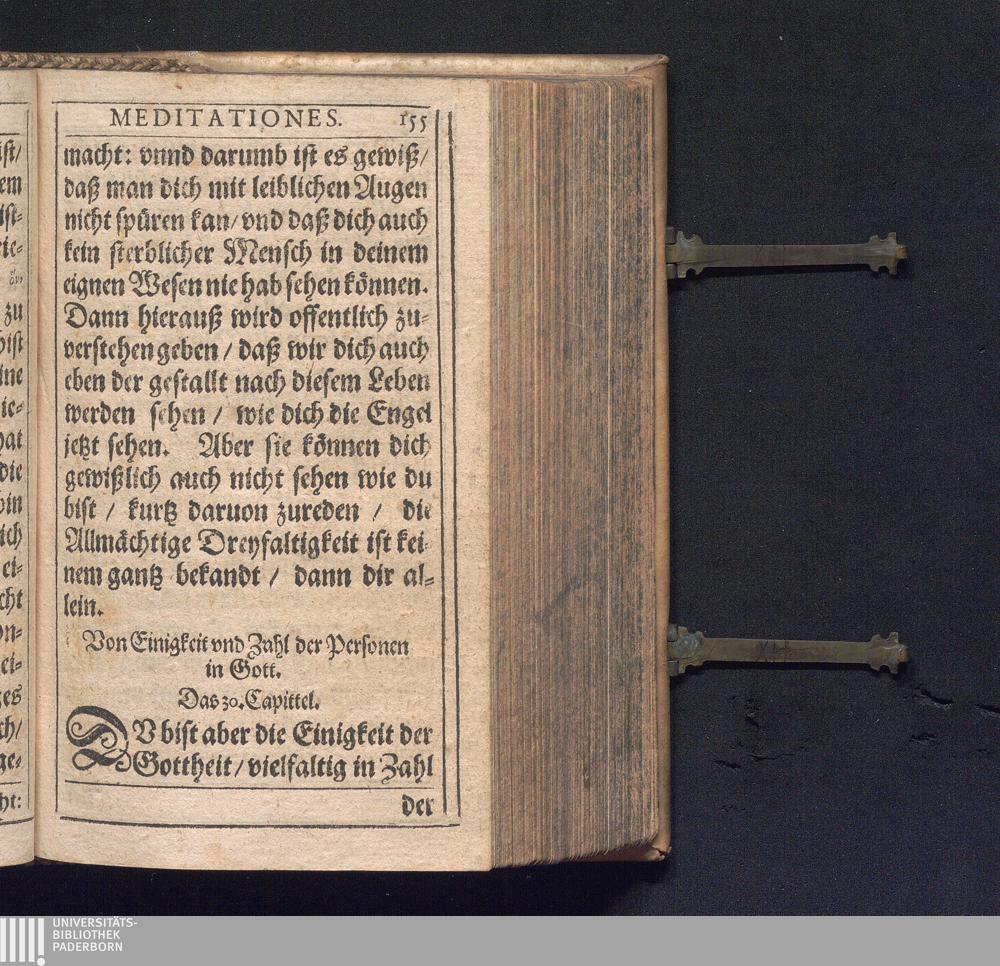 MEDITATIONES. 155
macht: vnnd darumb ist es gewiß/
daß man dich mit leiblichen Augen
nicht spüren kan/ vnd daß dich auch
kein sterblicher Mensch in deinem
eignen Wesen nie hab sehen können.
Dann hierauß wird offentlich zu-
verstehen geben / daß wir dich auch
eben der gestallt nach diesem Leben
werden sehen / wie dich die Engel
jetzt sehen. Aber sie können dich
gewißlich auch nicht sehen wie du
bist / kurtz daruon zureden / die
Allmächtige Dreyfaltigkeit ist kei-
nem gantz bekandt / dann dir al-
lein.
Von Einigkeit vnd Zahl der Personen
in Gott.
Das 30. Capittel.
DV bist aber die Einigkeit der
Gottheit/ vielfaltig in Zahl
der
UNIVERSITÄTS-
BIBLIOTHEK
PADERBORN